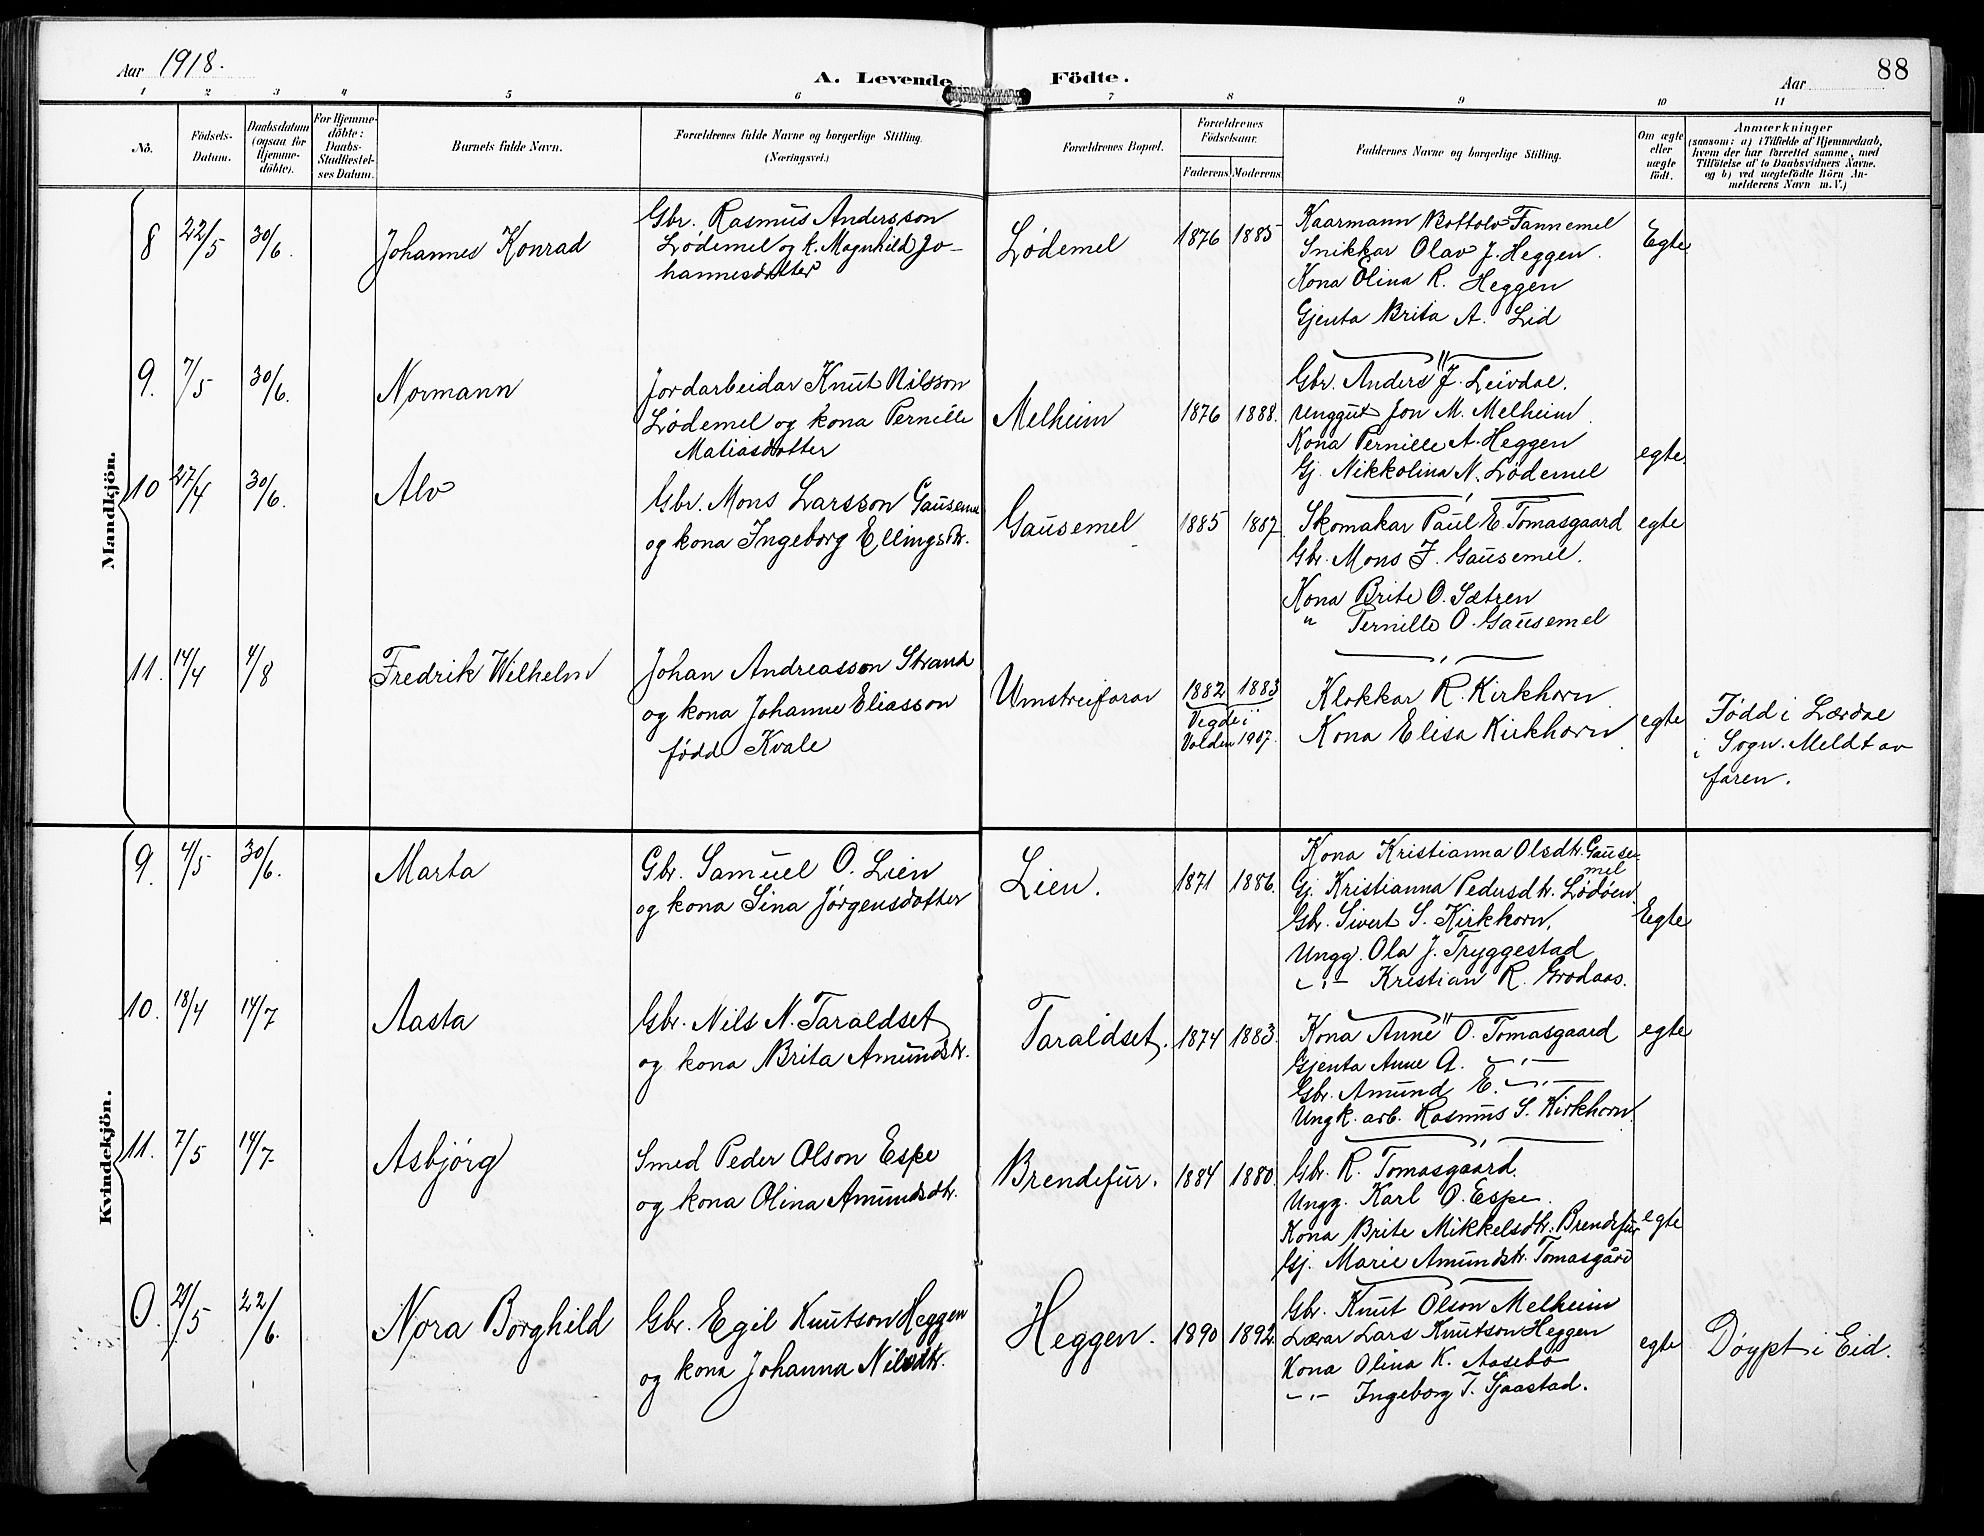 Aar 1918.
A. Levende Födte.
Aar
88
1 2 3 4 5 6 7 8 9 10 11
No.
Födsels-Datum.
Daabsdatum (ogsaa for Hjemmedöbte).
For Hjemmedöbte: Daabs-Stadfæstelses Datum.
Barnets fulde Navn.
Forældrenes fulde Navne og borgerlige Stilling.
(Næringsvei.)
Forældrenes Bopæl.
Forældrenes Födselsaar.
Faderens Moderens
Faddernes Navne og borgerlige Stilling.
Om ægte eller uægte födt.
Anmærkninger
(saasom: a) i Tilfælde af Hjemmedaab,
hvem der har forrettet samme, med
Tilföielse af to Daabsvidners Navne.
og b) ved uægtefödte Börn An-
melderens Navn m. V.)
Mandkjön.
8 22/5 30/6. Johannes Konrad
Gbr. Rasmus Andersson
Lødemel og k. Magnhild Jo-
hannesdatter
Lødemel 1876 1885
Kaarmann Bottolv Fannemel
Snikkar Olav J. Heggen.
Kona Olina R. Heggen
Gjenta Brita A. Lid
Egte
9. 7/5 30/6. Normann
Jordarbeidar Knut Nilsson
Lødemel og kona Pernille
Matiasdatter
Melheim 1876 1888.
Gbr. Anders J. Leivdal.
Unggut Jon M. Melheim
Kona Pernille A. Heggen
Gj. Nikkolina N. Lødemel
egte.
10 27/4 30/6. Alv
Gbr. Mons Larsson Gausemel
og kona Ingeborg Ellingsdtr.
Gausemel 1885 1887
Skomakar Paul E. Tomasgaard
Gbr. Mons J. Gausemel.
Kona Brite O. Sætren
" Pernille O. Gausemel
egte
11. 14/4 4/8 Fredrik Wilhelm
Johan Andreasson Strand
og kona Johanne Eliasson
fødd Kvale
Umstreifarar 1882 1883
Vigde i
Volden 1907.
Klokkar R. Kirkhorn
Kona Elisa Kirkhorn
egte
Fødd i Lærdal
i Sogn. Meldt av
faren.
Kvindekjön.
9. 4/5 30/6. Marta
Gbr. Samuel O. Lien
og kona Sina Jørgensdatter
Lien. 1871 1886.
Kona Kristianna Olsdtr. Gause-
mel
Gj. Kristianna Pedersdtr. Lødøen
Gbr. Sivert S. Kirkhorn.
Ungg. Ola J. Tryggestad
-"- Kristian R. Grodaas.
Egte
10. 18/4 14/7 Aasta
Gbr. Nils N. Taraldset
og kona Brita Amundsdtr.
Taraldset. 1874 1883.
Kona Anne O. Tomasgaard
Gjenta Anne A. -"-
Gbr. Amund E. -"-
Ungk. arb. Rasmus S. Kirkhorn.
egte
11. 7/5 14/7. Asbjørg
Smed Peder Olson Espe
og kona Olina Amundsdtr.
Brendefur. 1884 1880.
Gbr. R. Tomasgaard.
Ungg. Karl O. Espe.
Kona Brite Mikkelsdtr. Brendefur
Gj. Marie Amundsdtr. Tomasgård
egte
0. 21/5 22/6. Nora Borghild
Gbr. Egil Knutson Heggen
og kona Johanna Nilsdtr.
Heggen. 1890 1892
Gbr. Knut Olson Melheim
Lærar Lars Knutson Heggen
Kona Olina K. Aasebø
-"- Ingeborg T. Sjaastad.
egte
Døypt i Eid.